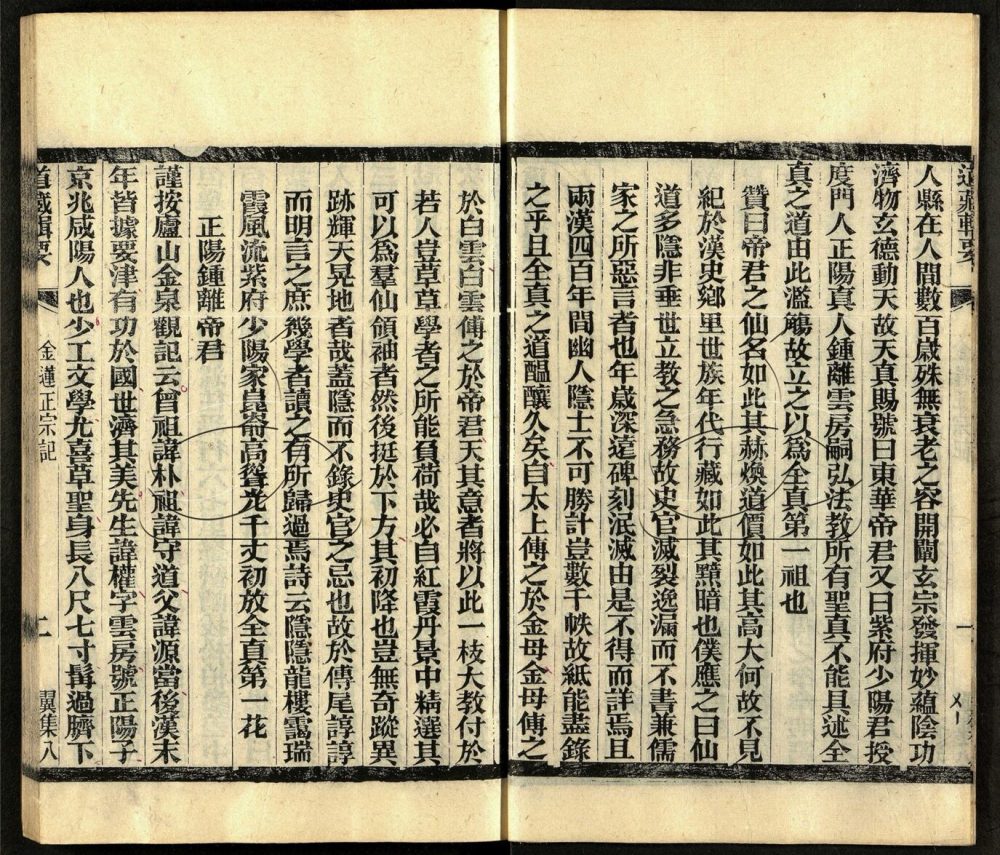 人縣在人間數百歲殊無衰老之容開闡玄宗發揮妙蘊陰功
濟物玄德動天故天真賜號曰東華帝君又曰紫府少陽君授
度門人正陽真人鍾離雲房嗣弘法教所有聖真不能具述全
真之道由此濫觴故立之以爲全真第一祖也
贊曰帝君之仙名如此其赫煥道價如此其高大何故不見
紀於漢史鄉里世族年代行藏如此其黯暗也僕應之曰仙
道多隱非垂世立教之急務故史官滅裂逸漏而不書兼儒
家之所惡言者也年歲深遠碑刻泯滅由是不得而詳焉且
兩漢四百年間幽人隱士不可勝計豈數千帙故紙能盡錄
之乎且全真之道醞釀久矣自太上傳之於金母金母傳之
於白雲白雲傳之於帝君天其意者將以此一枝大教付於
若人豈草草學者之所能負荷哉必自紅霞丹景中精選其
可以爲羣仙領袖者然後挺於下方其初降也豈無奇蹤異
跡輝天晃地者哉蓋隱而不錄史官之忌也故於傳尾諄諄
而明言之庶幾學者讀之有所歸過焉詩云隱隱龍樓靄瑞
霞風流紫府少陽家崑崙高聳光千丈初放全真第一花
正陽鍾離帝君
謹按廬山金泉觀記云曾祖諱朴祖諱守道父諱源當後漢末
年皆據要津有功於國世濟其美先生諱權字雲房號正陽子
京兆咸陽人也少工文學尤喜草聖身長八尺七寸髯過臍下
道藏輯要
金蓮正宗記
二
翼集八